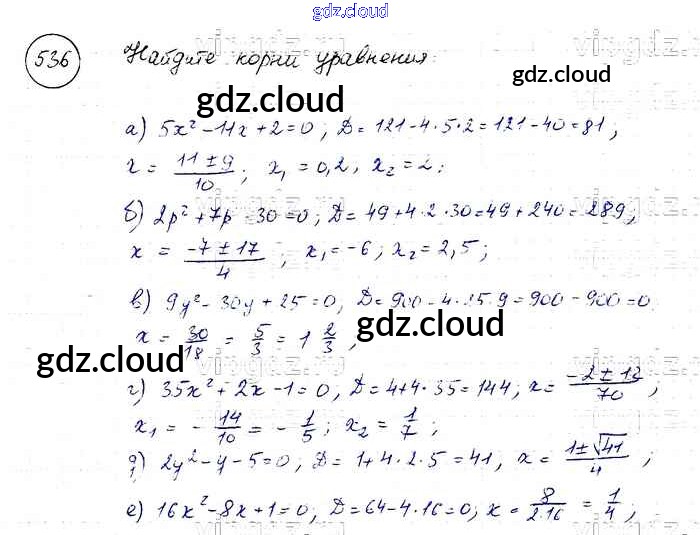 gdz.cloud
536 Найдите корни уравнения:
gdz.cloud gdz.cloud
а) 5x² - 11x + 2 = 0, D = 121 - 4·5·2 = 121 - 40 = 81,
x = (11 ± 9)/10; x₁ = 0,2, x₂ = 2;
б) 2p² + 7p - 30 = 0; D = 49 + 4·2·30 = 49 + 240 = 289;
x = (-7 ± 17)/4, x₁ = -6; x₂ = 2,5;
в) 9y² - 30y + 25 = 0, D = 900 - 4·25·9 = 900 - 900 = 0
x = 30/18 = 5/3 = 1 2/3,
gdz.cloud
gdz.cloud
г) 35x² + 2x - 1 = 0, D = 4 + 4·35 = 144, x = (-2 ± 12)/70,
x₁ = -14/10 = -1/5; x₂ = 1/7;
д) 2y² - y - 5 = 0; D = 1 + 4·2·5 = 41, x = (1 ± √41)/4;
е) 16x² - 8x + 1 = 0, D = 64 - 4·16 = 0; x = 8/2·16 = 1/4;
gdz.cloud